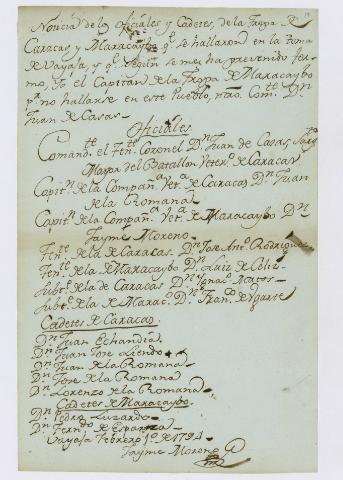 Noticia de los Oficiales y Cadetes, de la Tropa de
Caracas y Maracaybo qe. se hallaron en la toma
de Vayajá, y qe. según se me ha prevenido fir-
mo, Yo el Capitan de la Tropa de Maracaybo
pr. no hallarse en este Pueblo, ntro. Comte. Dn.
Juan de Casas.
Oficiales
Comandte. el Tente. Coronel Dn. Juan de Casas, Sargto.
Mayor del Batallon Vetero. de Caracas
Capitn. de la Compaña. Veta. de Caracas Dn. Juan
de la Romana
Capitn. de la Compaña. Veta. de Maracaybo Dn.
Jayme Moreno.
Tente. de la de Caracas. Dn. Jose Anto. Rodriguez
Tente. de la de Maracaybo Dn. Luiz de Céliz
Subte. de la de Caracas Dn. Ignaco. Matos
Subte. de la de Maraco. Dn. Franco. de Ygarte
Cadetes de Caracas.
Dn. Juan Echandia
Dn. Juan Jose Liendo
Dn. Juan de la Romana
Dn. Jose de la Romana
Dn. Lorenzo de la Romana
Cadetes de Maracaybo.
Dn. Pedro Luzardo
Dn. Ferndo. de Esparza
Vayajá Febrero 1º. de 1794
Jayme Moreno